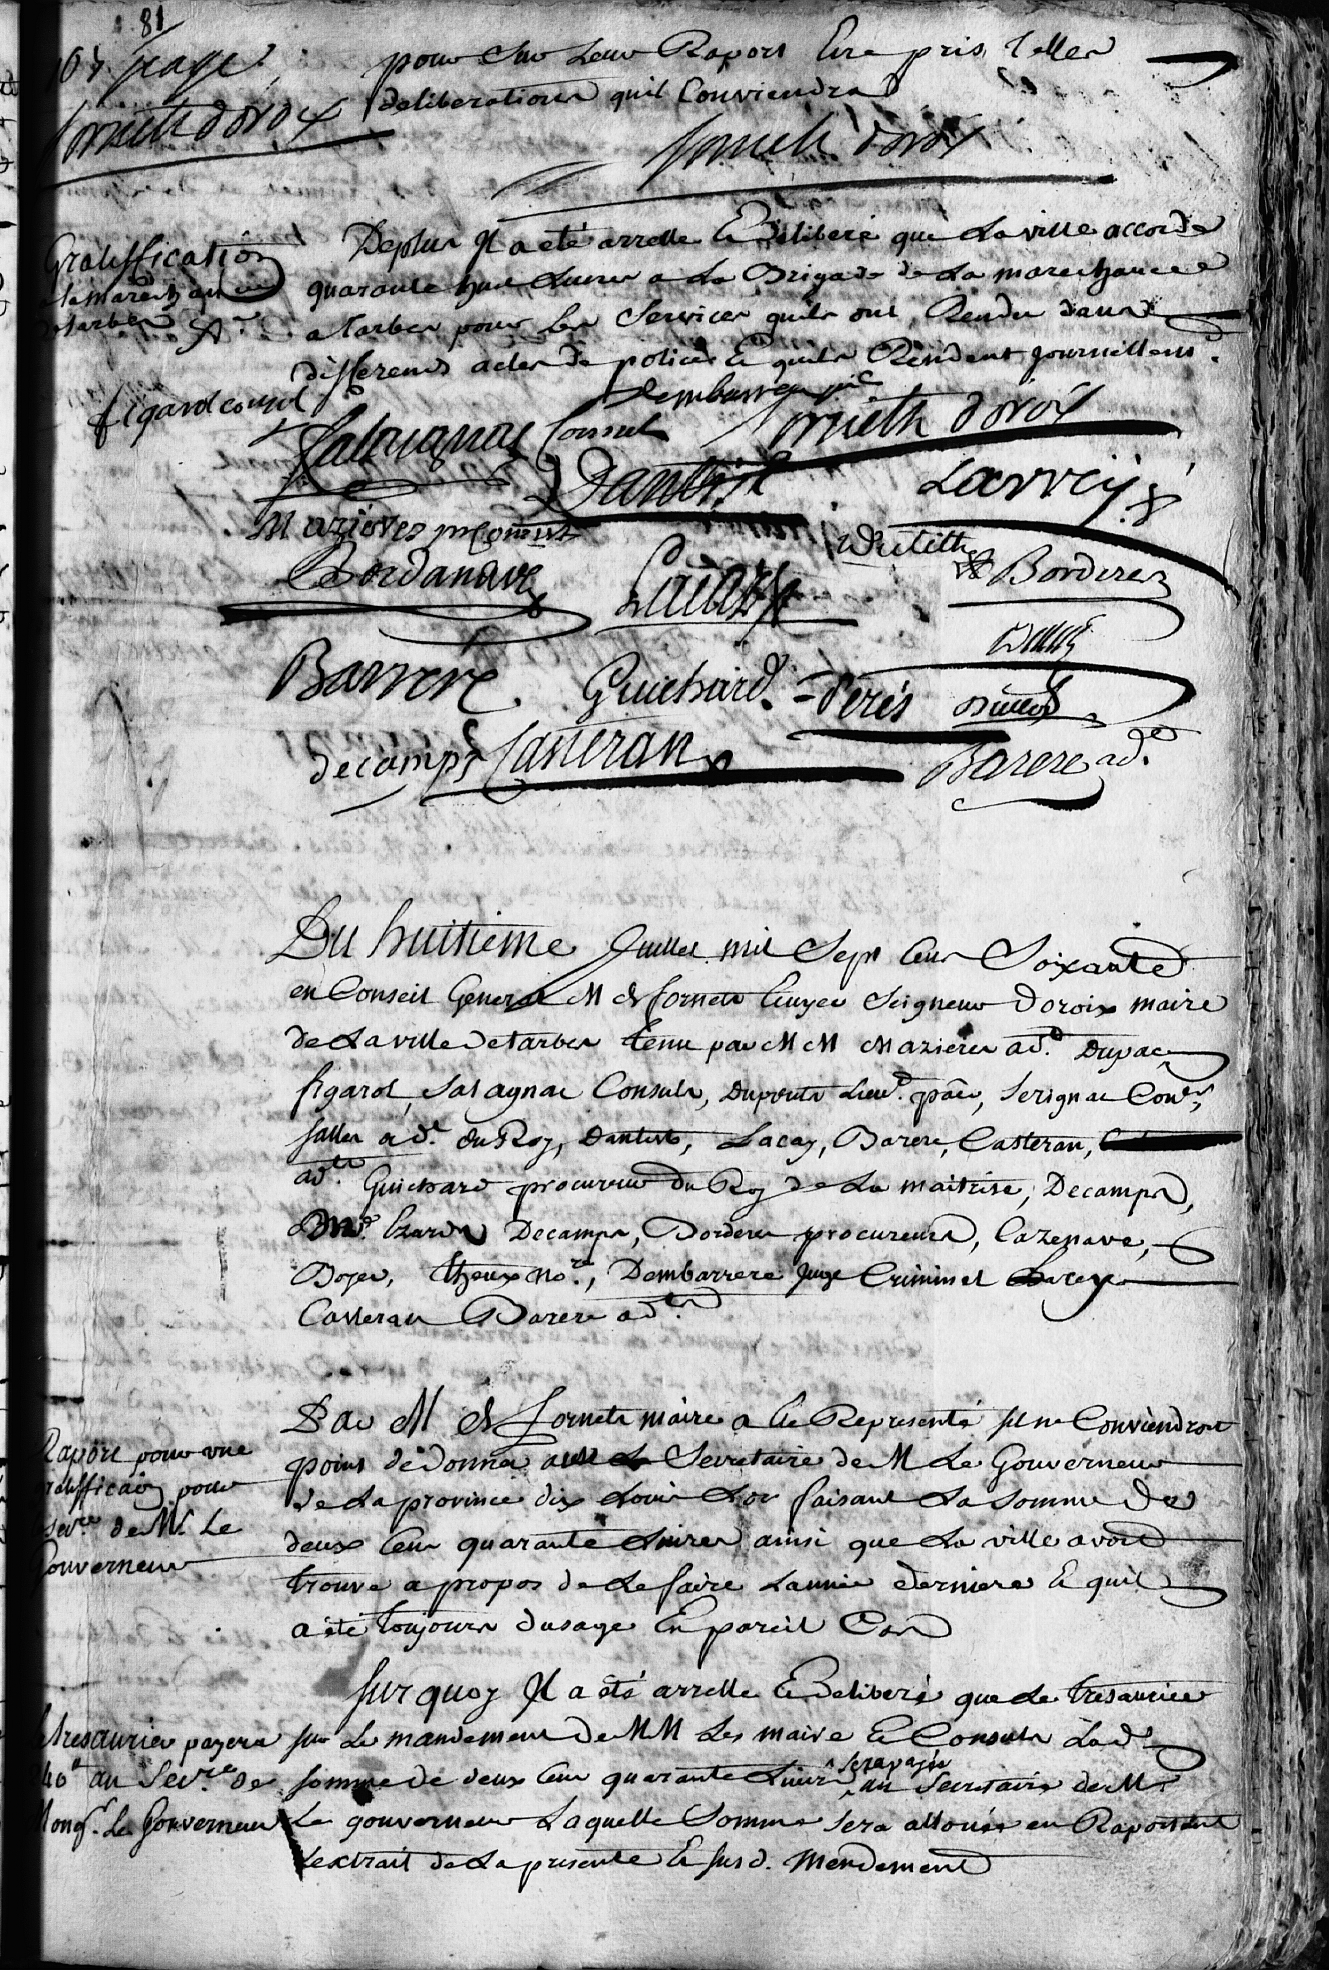 81
page
pour sur Leur Raport Etre pris telles
deliberations quil Conviendra
fornetz doroix
fornetz doroix
Gratiffication
a la marechaussée
de tarbes
Deplus Il a eté arretté & Deliberé que La ville accorde
quarante huit Livres a La Brigade de La marechaussée
a tarbes pour les Services quils ont Rendu dans
differends actes de police & quils Rendent journellemt.
figarol consul
Dembarrere
Salaignac Consul
fornetz doroix
Dantist
Larrey
Mazieres pr Consul
Bordenave
Bordere
Barrere
Guichard
Perés
decamps
Casteran
Barere ad.
Du huitieme Juillet mil Sept Cens Soixante
en Conseil General M de fornetz Ecuyer Seigneur doroix maire
de La ville de tarbes tenu par M M Mazieres ad. Dupac
figarol, Salagnac Consuls, Duponts Lieut. pãr, Serignac Conr.
salles adt. du Roy, Dantist, Lacay, Barere, Casteran,
adts. Guichard procureur du Roy de La maitrise, Decamps,
Izard Decamps, Bordere procureurs, Cazenave,
Boyer, theux nore., Dembarrere Juge Criminel
Casteran Barere adts.
Par M de fornetz maire a été Representé sil ne Conviendroit
point de donner au Secretaire de M Le Gouverneur
de La province dix Louis d'or faisant La Somme de
deux Cens quarante Livres ainsi que La ville avoit
trouvé a propos de Le faire Lannée derniere & quil
a été toujours dusage En pareil Cas
Raport pour une
gratifficaõn pour
le secre. de M. Le
Gouverneur
Sur quoy Il a été arretté & Deliberé que Le tresaurier
sur Le mandement de MM Les maire & Consuls Lad.
sera payée
somme de deux Cens quarante Livres au Secretaire de Mr
Le gouverneur Laquelle Somme sera allouée en Raportant
Lextrait de La presente & susd. Mendement
Le tresaurier payera
240# au Secre. de
Mong. Le Gouverneur